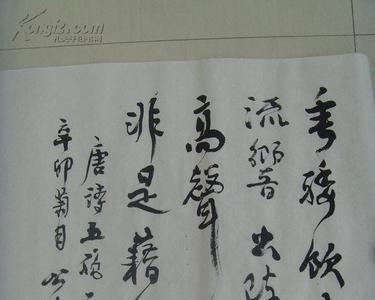 Kongfz.com
垂緌飲
流響出疏
高聲
非是藉
唐詩五絕
辛卯菊月